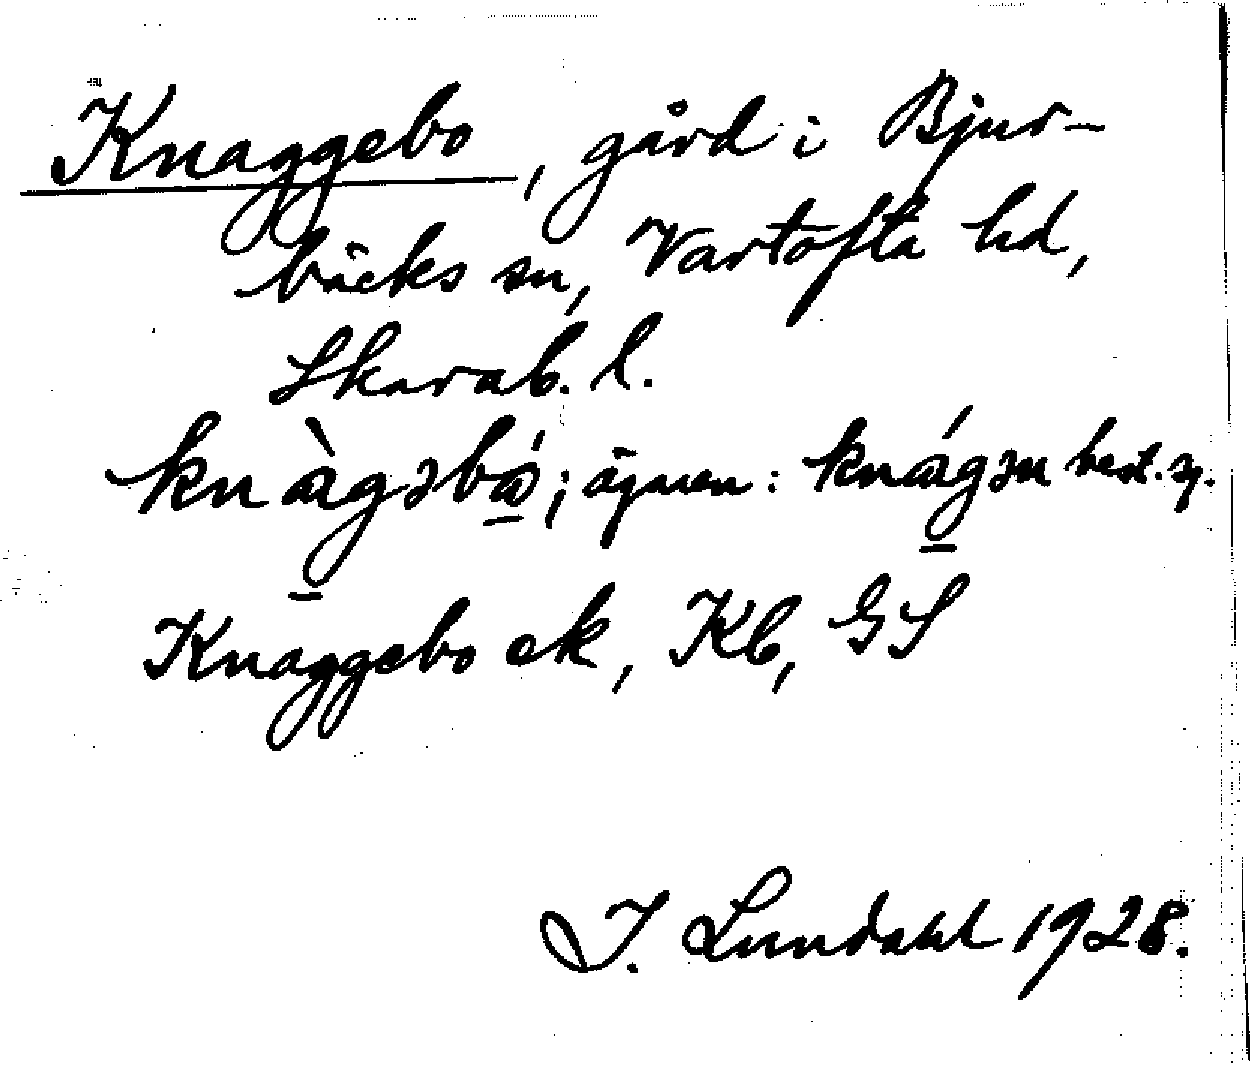 Knaggebo, gård i Bjur-
bäcks sn, Vartofta hd,
Skarab. l.
knàgəbó; ägnen: knágən best. sg.
Knaggebo ek, Kb, GS
I. Lundahl 1928.